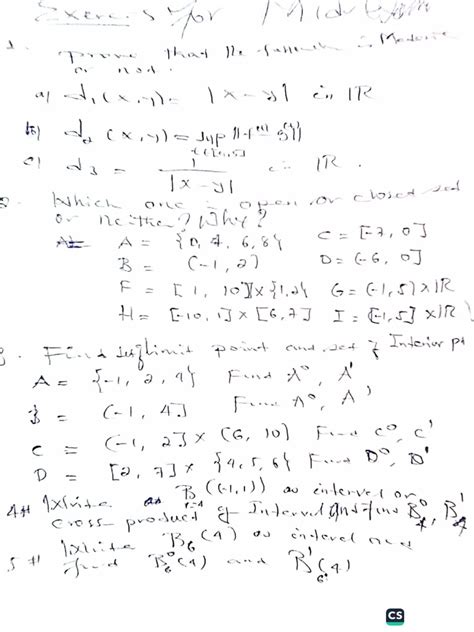 Exercis for Mid
1. prove that the is Metric
or not.
a) d₁(x,y) = |x-y| in IR
b) d₂(x,y) = sup
c) d₃ = 1/|x-y| in IR.
2. Which one is open, or closed set
or neither? Why?
A = {0, 4, 6, 8} C = [-7, 0]
B = (-1, 2) D = (-6, 0]
F = [1, 10] x {1,2} G = (-1, 5) x IR
H = [-10, 1] x [6, 7] I = (-1, 5] x IR
3. Find limit point and set of Interior pt
A = {-1, 2, 4} Find A⁰, A'
B = (-1, 4] Find A⁰, A'
C = (-1, 2] x (6, 10] Find C⁰, C'
D = [2, 7] x {4, 5, 6} Find D⁰, D'
4# Write B ((-1,1)) as interval or
cross product of Interval and find B⁰, B'
5# Write B₆(4) as interval and
find B₆⁰(4) and B₆'(4)
CS